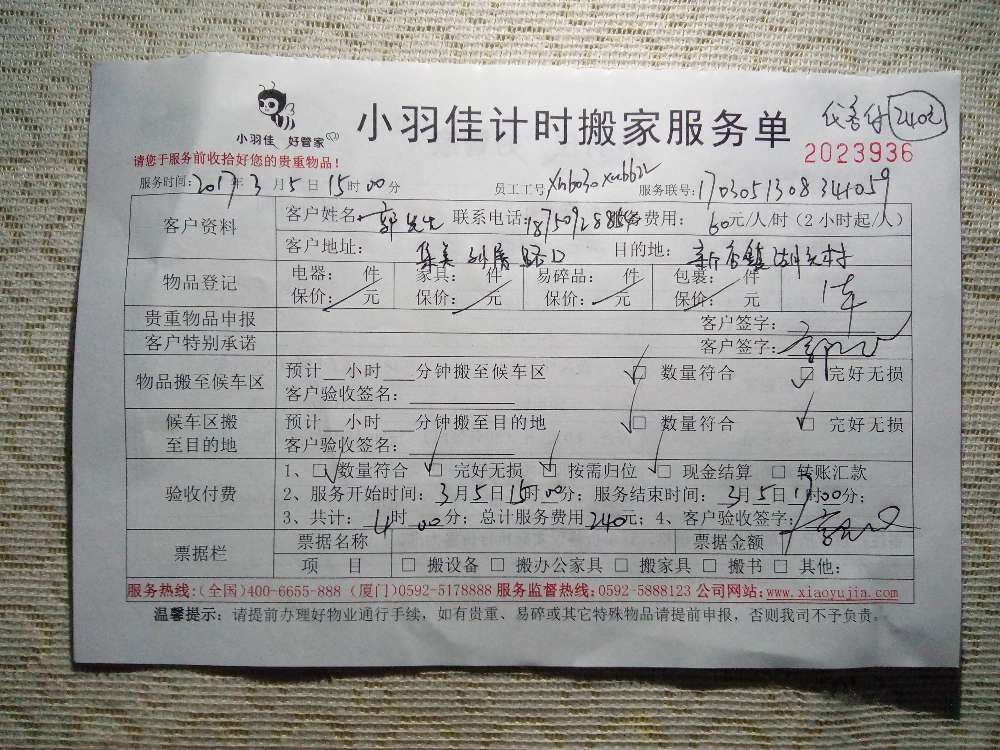 小羽佳 好管家
小羽佳计时搬家服务单
240元
2023936
请您于服务前收拾好您的贵重物品！
服务时间：2017年3月5日15时00分 员工工号 服务联号：1703051308341059
客户资料
客户姓名：郭先生 联系电话： 服务费用：60元/人/时（2小时起/人）
客户地址：集美 路口 目的地：新店镇湖头村
物品登记
电器： 件 家具： 件 易碎品： 件 包裹： 件
保价： 元 保价： 元 保价： 元 保价： 元
1车
贵重物品申报 客户签字：
客户特别承诺 客户签字：
物品搬至候车区
预计__小时___分钟搬至候车区 □ 数量符合 □ 完好无损
客户验收签名：
候车区搬至目的地
预计__小时___分钟搬至目的地 □ 数量符合 □ 完好无损
客户验收签名：
验收付费
1、□ 数量符合 □ 完好无损 □ 按需归位 □ 现金结算 □ 转账汇款
2、服务开始时间：3月5日15时00分；服务结束时间：3月5日17时00分；
3、共计：4时00分；总计服务费用240元；4、客户验收签字：
票据栏
票据名称 票据金额
项 目 □ 搬设备 □ 搬办公家具 □ 搬家具 □ 搬书 □ 其他：
服务热线：（全国）400-6655-888（厦门）0592-5178888 服务监督热线：0592-5888123 公司网站：www.xiaoyujia.com
温馨提示：请提前办理好物业通行手续，如有贵重、易碎或其它特殊物品请提前申报，否则我司不予负责。